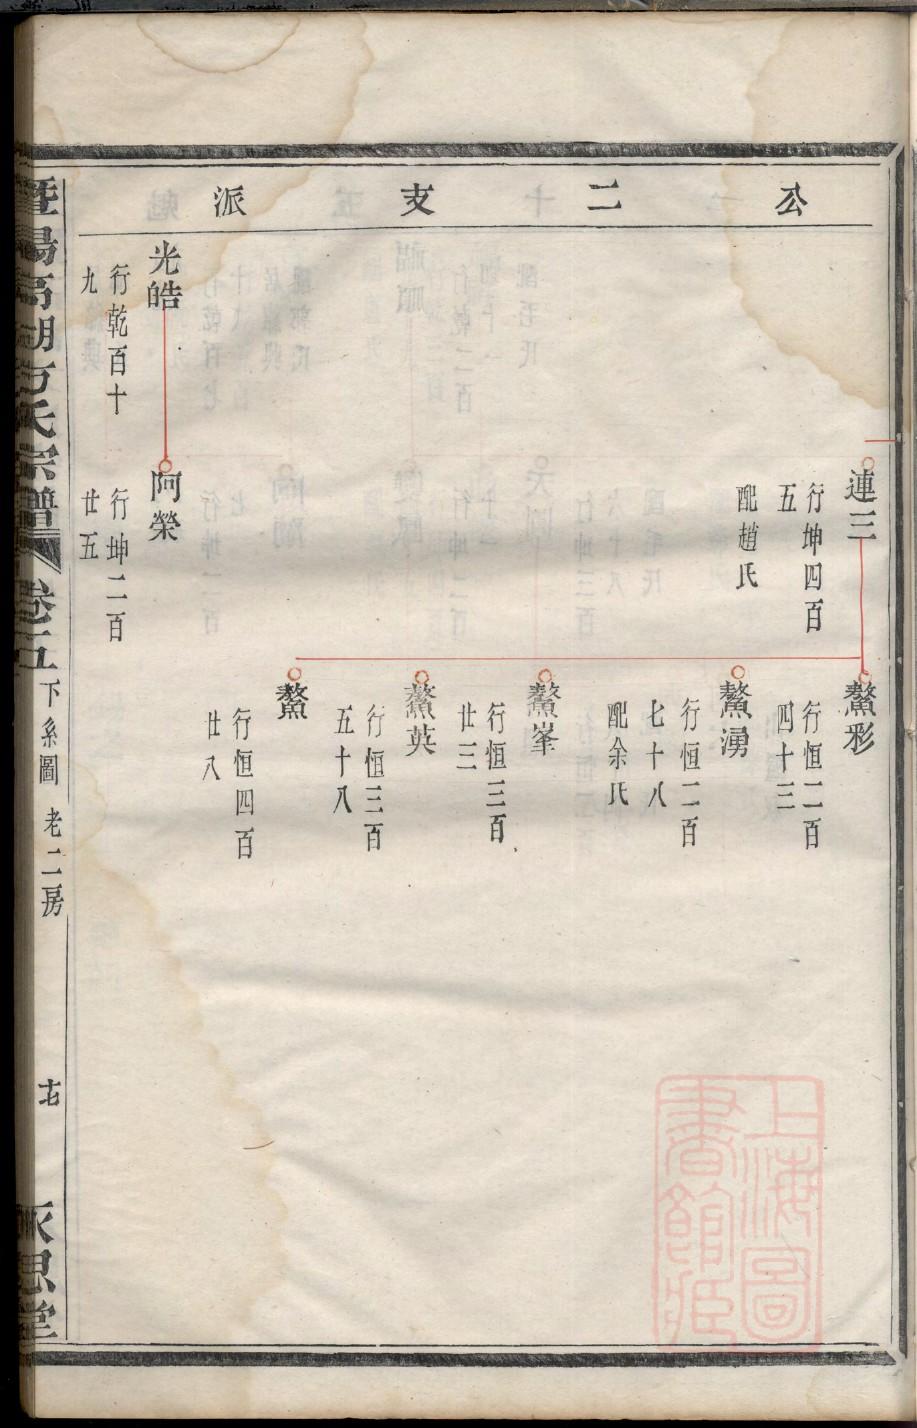 公二支派
連三
行坤四百
五
配趙氏
鰲彩
行恒二百
四十三
鰲湧
行恒二百
七十八
配余氏
鰲峯
行恒三百
廿三
鰲英
行恒三百
五十八
鰲
行恒四百
廿八
光皓
行乾百十
九
阿榮
行坤二百
廿五
暨陽高湖方氏宗譜
卷五
下系圖
老二房
十七
永思堂
上海圖
書館